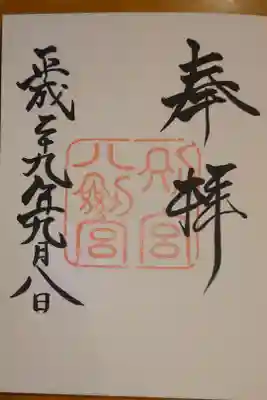 奉拝
別宮
八剣宮
平成二十九年九月八日